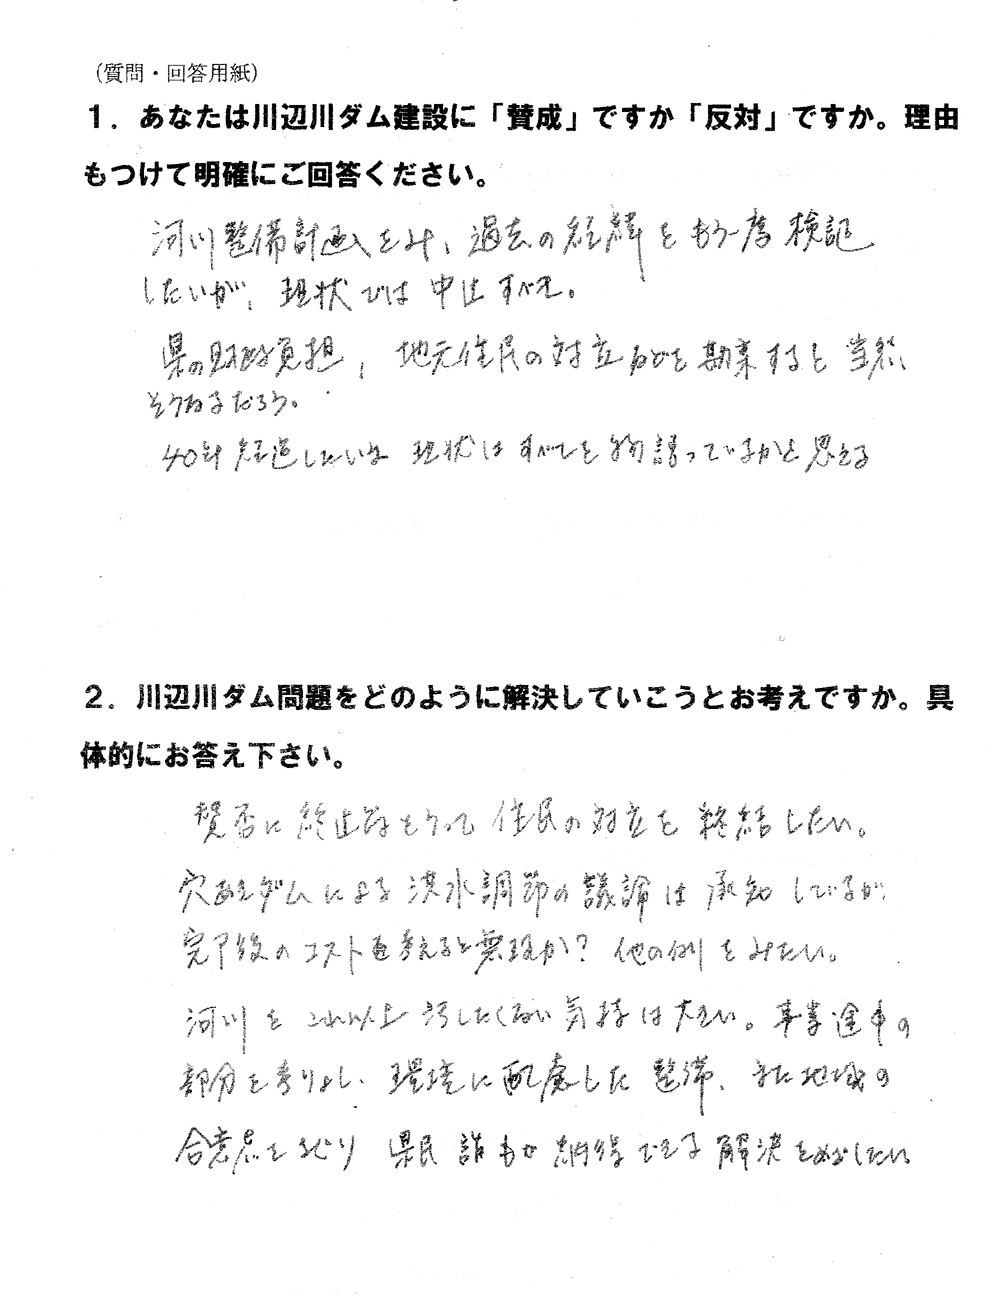 （質問・回答用紙）
１．あなたは川辺川ダム建設に「賛成」ですか「反対」ですか。理由
もつけて明確にご回答ください。
河川整備計画をみ、過去の経緯をもう一度検証
したいが、現状では中止すべき。
県の財政負担、地元住民の対立などを勘案すると当然
そうなるだろう。
40年経過したいま現状はすべてを物語っているかと思える
２．川辺川ダム問題をどのように解決していこうとお考えですか。具
体的にお答え下さい。
賛否に終止符をうって住民の対立を終結したい。
穴あきダムによる洪水調節の議論は承知しているが、
完了後のコスト面考えると無理か？他の例をみたい。
河川をこれ以上汚したくない気持は大きい。事業途中の
部分を考りょし、環境に配慮した整備、また地域の
合意点をさぐり県民誰もが納得できる解決をめざしたい